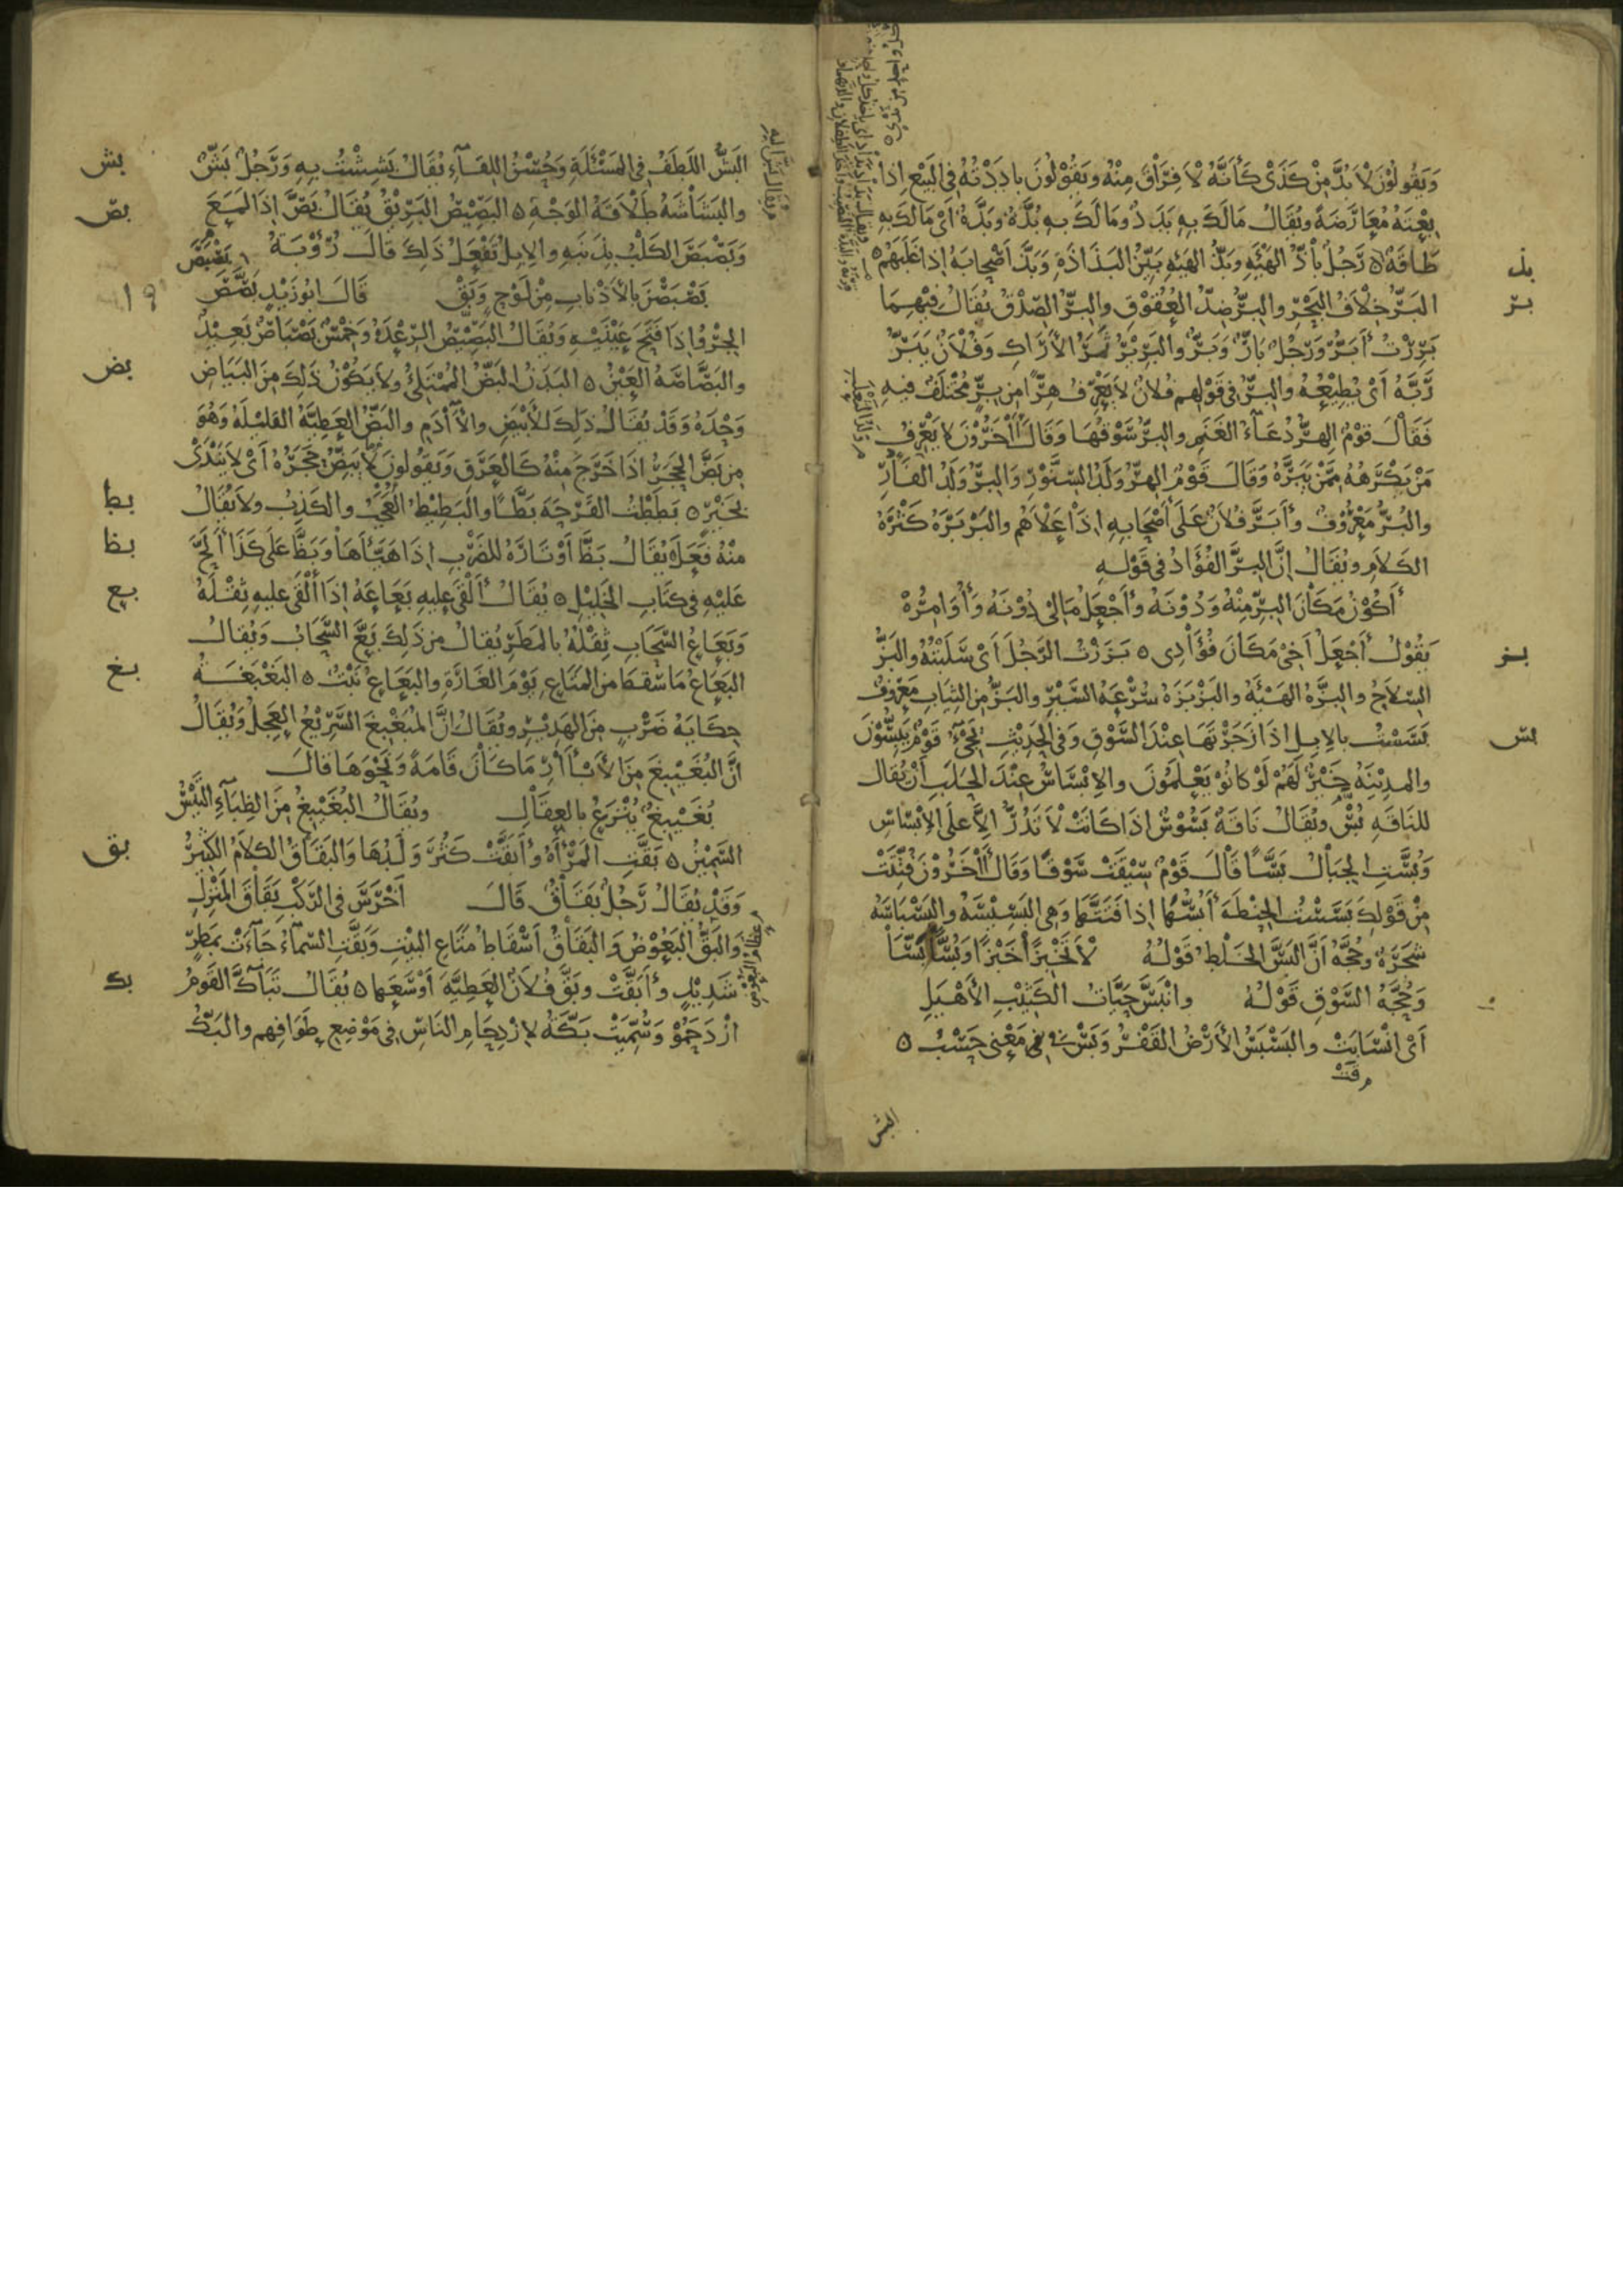 وَيَقُولُونَ لَا بُدَّ مِنْ كَذَىْ كَأَنَّهُ لَا فِرَاقَ مِنْهُ وَيَقُوْلُونَ بادَدْتُهُ فِى البَيْعِ إذا
بِعْتَهُ مُعَارَضَةً وَيُقَالُ مَا لَكَ بِهِ بَدَدٌ وَمَا لَكَ بِهِ بُدَّةٌ وَبَدَّةٌ أَىْ مَا لَكَ بِهِ
طَاقَةٌ ه رَجُلٌ بَاذُّ الهَيْئَةِ وَبَذُّ الهَيْئَةِ بَيِّنُ البَذَاذَةِ وَبَذَّ أَصْحَابَهُ إِذَا غَلَبَهُمْ ه
بذ
البَرُّ خِلَافُ البَحْرِ والبِرُّ ضِدُّ العُقُوْقِ والبِرُّ الصِّدْقُ يُقَالُ فِيْهِمَا
بر
بَرِرْتُ أَبَرُّ وَرَجُلٌ بَارٌّ وَبَرٌّ والبَرِيْرُ ثَمَرُ الأَرَاكِ وَفُلَانٌ يَبَرُّ
رَبَّهُ أَىْ يُطِيْعُهُ والبِرُّ فِى قَوْلِهِم فُلَانٌ لَا يَعْرِفُ هِرًّا مِن بِرٍّ مُخْتَلَفٌ فِيهِ
فَقَالَ قَوْمٌ الهِرُّ دُعَآءُ الغَنَمِ والبِرُّ سَوْقُهَا وَقَالَ آخَرُوْنَ لَا يَعْرِفُ
مَنْ يَكْرَهُهُ مِمَّنْ يَبَرُّهُ وَقَالَ قَوْمٌ الهِرُّ وَلَدُ السِّنَّوْرِ وَالبِرُّ وَلَدُ الفَأْرِ
والبُرُّ مَعْرُوْفٌ وَأَبَرَّ فُلَانٌ عَلَى أَصْحَابِهِ إِذَا عَلَاهُم والبَرْبَرَةُ كَثْرَةُ
الكَلَامِ وَيُقَالُ إِنَّ البِرَّ الفُؤَادُ فِى قَوْلِهِ
أَكُوْنُ مَكَانَ البِرِّ مِنْهُ وَدُوْنَهُ وَأَجْعَلُ مَالِى دُوْنَهُ وَأُوَامِرُهْ
يَقُوْلُ أَجْعَلُ أَخِى مَكَانَ فُؤَادِى ه بَزَزْتُ الرَّجُلَ أَىْ سَلَبْتُهُ والبَزُّ
بز
السِّلَاحُ والبِزَّةُ الهَيْئَةُ والبَزْبَزَةُ سُرْعَةُ السَّيْرِ والبَزُّ مِنَ الثِّيَابِ مَعْرُوْفٌ
بَسَسْتُ بالإبِلِ إِذَا زَجَرْتَهَا عِنْدَ السَّوْقِ وَفِى الحَدِيْثِ يَجِىْءُ قَوْمٌ يَبُسُّوْنَ
بس
والمَدِيْنَةُ خَيْرٌ لَهُمْ لَوْ كَانُوْ يَعْلَمُونَ والإِبْسَاسُ عِنْدَ الحَلَبِ أَنْ يُقَالَ
للنَّاقَةِ بُسْ وَيُقَالُ نَاقَةٌ بَسُوْسٌ إِذَا كَانَتْ لَا تَدُرُّ إلَّا عَلَى الإِبْسَاسِ
وَبُسَّتِ الجِبَالُ بَسًّا قَالَ قَوْمٌ سِيْقَتْ سَوْقًا وَقَالَ آخَرُوْنَ فُتِّتَتْ
مِنْ قَوْلِكَ بَسَسْتُ الحِنْطَةَ أَبُسُّهَا إِذَا فَتَتَّهَا وَهِىَ البَسِيْسَةُ والبَسْبَاسَةُ
شَجَرَةٌ وَحُجَّةُ أَنَّ البَسَّ الخَلْطُ قَوْلُهُ لَا تَخْبِزَا خَبْزًا وَبُسَّا بَسَّا
وَحُجَّةُ السَّوْقِ قَوْلُهُ وانْبَسَّ حَيَّاتُ الكَثِيْبِ الأَهْيَلِ
أَىْ انْسَابَتْ والبَسْبَسُ الأَرْضُ القَفْرُ وَبَسْ فِى مَعْنِى حَسْبُ ه
البش
البَشُّ اللُّطْفُ فِى المَسْئَلَةِ وَحُسْنُ اللِّقَآءِ يُقَالُ بَشِشْتُ بِهِ وَرَجُلٌ بَشٌّ
بش
والبَشَاشَةُ طَلَاقَةُ الوَجْهِ ه البَصِيْصُ البَرِيْقُ يُقَالُ بَصَّ إِذَا لَمَعَ
بص
وَبَصْبَصَ الكَلْبُ بِذَنَبِهِ والإِبِلُ تَفْعَلُ ذَلِكَ قَالَ رُؤْبَةُ
بَصْبَصْنَ بالأَذْنَابِ مِنْ لَوْحٍ وَبَقْ قَالَ ابُوزَيْدٍ بَصَّصَ
19
الجِرْوُ إِذَا فَتَحَ عَيْنَيْهِ وَيُقَالُ البَصِيْصُ الرِّعْدَةُ وَخِمْسٌ بَصْبَاصٌ بَعِيْدٌ
والبَصَّاصَةُ العَيْنُ ه البَدَنُ البَضُّ المُمْتَلِئُ وَلَا يَكُوْنُ ذَلِكَ مِنَ البَيَاضِ
بض
وَحْدَهُ وَقَدْ يُقَالُ ذَلِكَ للأَبْيَضِ والآدَمِ والبَضُّ العَطِيَّةُ القَلِيْلَةُ وَهُوَ
مِن بَضَّ الحَجَرُ إِذَا خَرَجَ مِنْهُ كَالعَرَقِ وَيَقُولُونَ لَا يَبِضُّ حَجَرُهُ أَىْ لَا يَنْدَى
بِخَيْرٍ ه بَطَطْتُ القَرْحَةَ بَطًّا والبَطِيْطُ العَجَبُ والكَذِبُ وَلَا يُقَالُ
بط
مِنْهُ فَعَلَ يُقَالُ بَظَّ أَوْتَارَهُ للضَّرْبِ إِذَا هَيَّأَهَا وَبَظَّ عَلَى كَذَا أَلَحَّ
بظ
عَلَيْهِ فِى كِتَابِ الخَلِيْلِ ه يُقَالُ أَلْقَى عَلِيهِ بَعَاعَهُ إِذَا أَلْقَى عَلِيهِ ثِقْلَهُ
بع
وَبَعَاعُ السَّحَابِ ثِقْلُهُ بالمَطَرِ يُقَالُ مِن ذَلِكَ بَعَّ السَّحَابُ وَيُقَالُ
البَعَاعُ مَا سَقَطَ مِنَ المَتَاعِ يَوْمَ الغَارَةِ والبَعَاعُ نَبْتٌ ه البَغْبَغَةُ
بغ
حِكَايَةُ ضَرْبٍ مِنَ الهَدِيْرِ وَيُقَالُ إِنَّ المُبَغْبِغَ السَّرِيْعُ العَجِلُ وَيُقَالُ
إِنَّ البُغَيْبِغَ مِنَ الأَبْآرِ مَا كَانَ قَامَةً وَنَحْوَهَا قَالَ
بُغَيْبِغٌ يُنْزَعُ بالعِقَالِ وَيُقَالُ البُغَيْبِغُ مِنَ الظِّبَآءِ التَّيْسُ
السَّمِيْنُ ه بَقَّتِ المَرْأَةُ وَأَبَقَّتْ كَثُرَ وَلَدُهَا وَالبَقَاقُ الكَلَامُ الكَثِيْرُ
بق
وَقَدْ يُقَالُ رَجُلٌ بَقَاقٌ قَالَ أَخْرَسَ فِى الرَّكْبِ بَقَاقَ المَنْزِلِ
وَالبَقُّ البَعُوْضُ وَالبَقَاقُ أَسْقَاطُ مَتَاعِ البَيْتِ وَبَقَّتِ السَّمَآءُ جَآءَتْ بِمَطَرٍ
شَدِيْدٍ وَأَبَقَّتْ وَبَقَّ فُلَانٌ العَطِيَّةَ أَوْسَعَهَا ه يُقَالُ تَبَآكَّ القَوْمُ
بك
ازْدَحَمُوْ وَسُمِّيَتْ بَكَّةُ لِازْدِحَامِ النَّاسِ فِى مَوْضِعِ طَوَافِهِم والبَكُّ